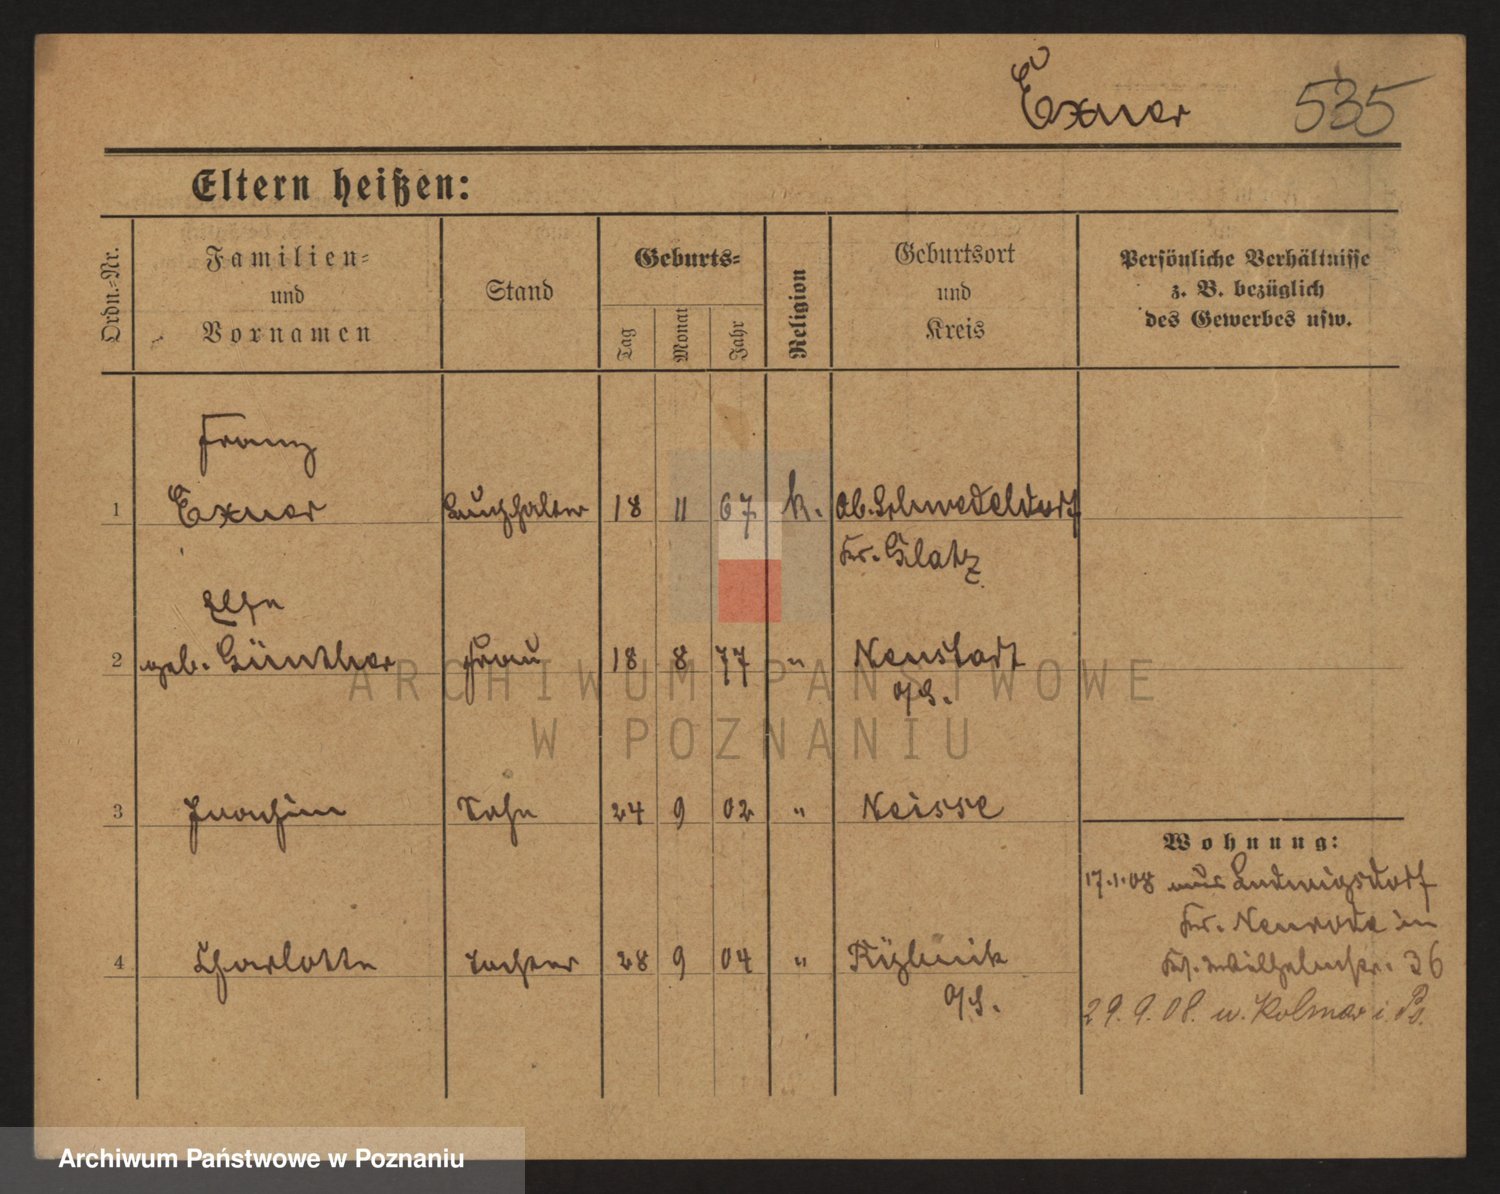 Exner 535
Eltern heißen:
Ordn.-Nr.
Familien-
und
Vornamen
Stand
Geburts-
Tag
Monat
Jahr
Religion
Geburtsort
und
Kreis
Persönliche Verhältnisse
z. B. bezüglich
des Gewerbes usw.
Franz
1 Exner Buchhalter 18 11 67 k. Ob. Schwedeldorf
Kr. Glatz
2 geb. Günther Frau 18 8 77 " Neustadt
O/S.
3 Joachim Sohn 24 9 02 " Neisse
Wohnung:
17.1.08 aus Ludwigsdorf
Kr. Neurode in
4 Charlotte Tochter 28 9 04 " Rybnik
Wilhelmstr. 36
O/S.
29.9.08. n. Kolmar i. Ps.
ARCHIWUM PAŃSTWOWE
W POZNANIU
Archiwum Państwowe w Poznaniu